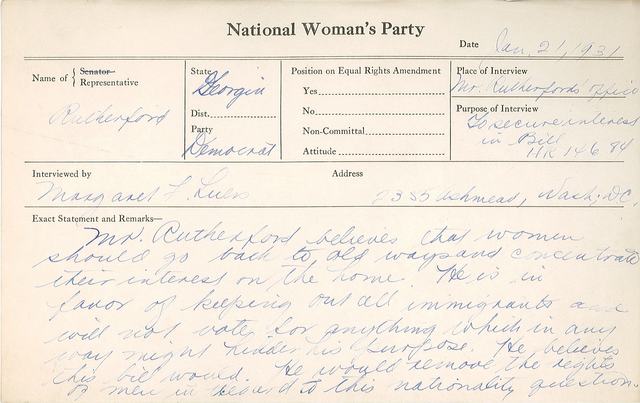 National Woman's Party
Date Jan. 21, 1931
Name of { Senator Representative
Rutherford
State Georgia
Dist.
Party
Democrat
Position on Equal Rights Amendment
Yes
No
Non-Committal
Attitude
Place of Interview
Mr. Rutherfords office
Purpose of Interview
To secure interest
in Bill
HR 14684
Interviewed by
Margaret L.
Address
Ashmead, Wash. D.C.
Exact Statement and Remarks—
Mr. Rutherford believes that women
should go back to old ways and concentrate
their interest on the home. He is in
favor of keeping out all immigrants and
will not vote for anything which in any
way might hinder his purpose. He believes
this bill would. He would remove the rights
of men in regard to this nationality question.